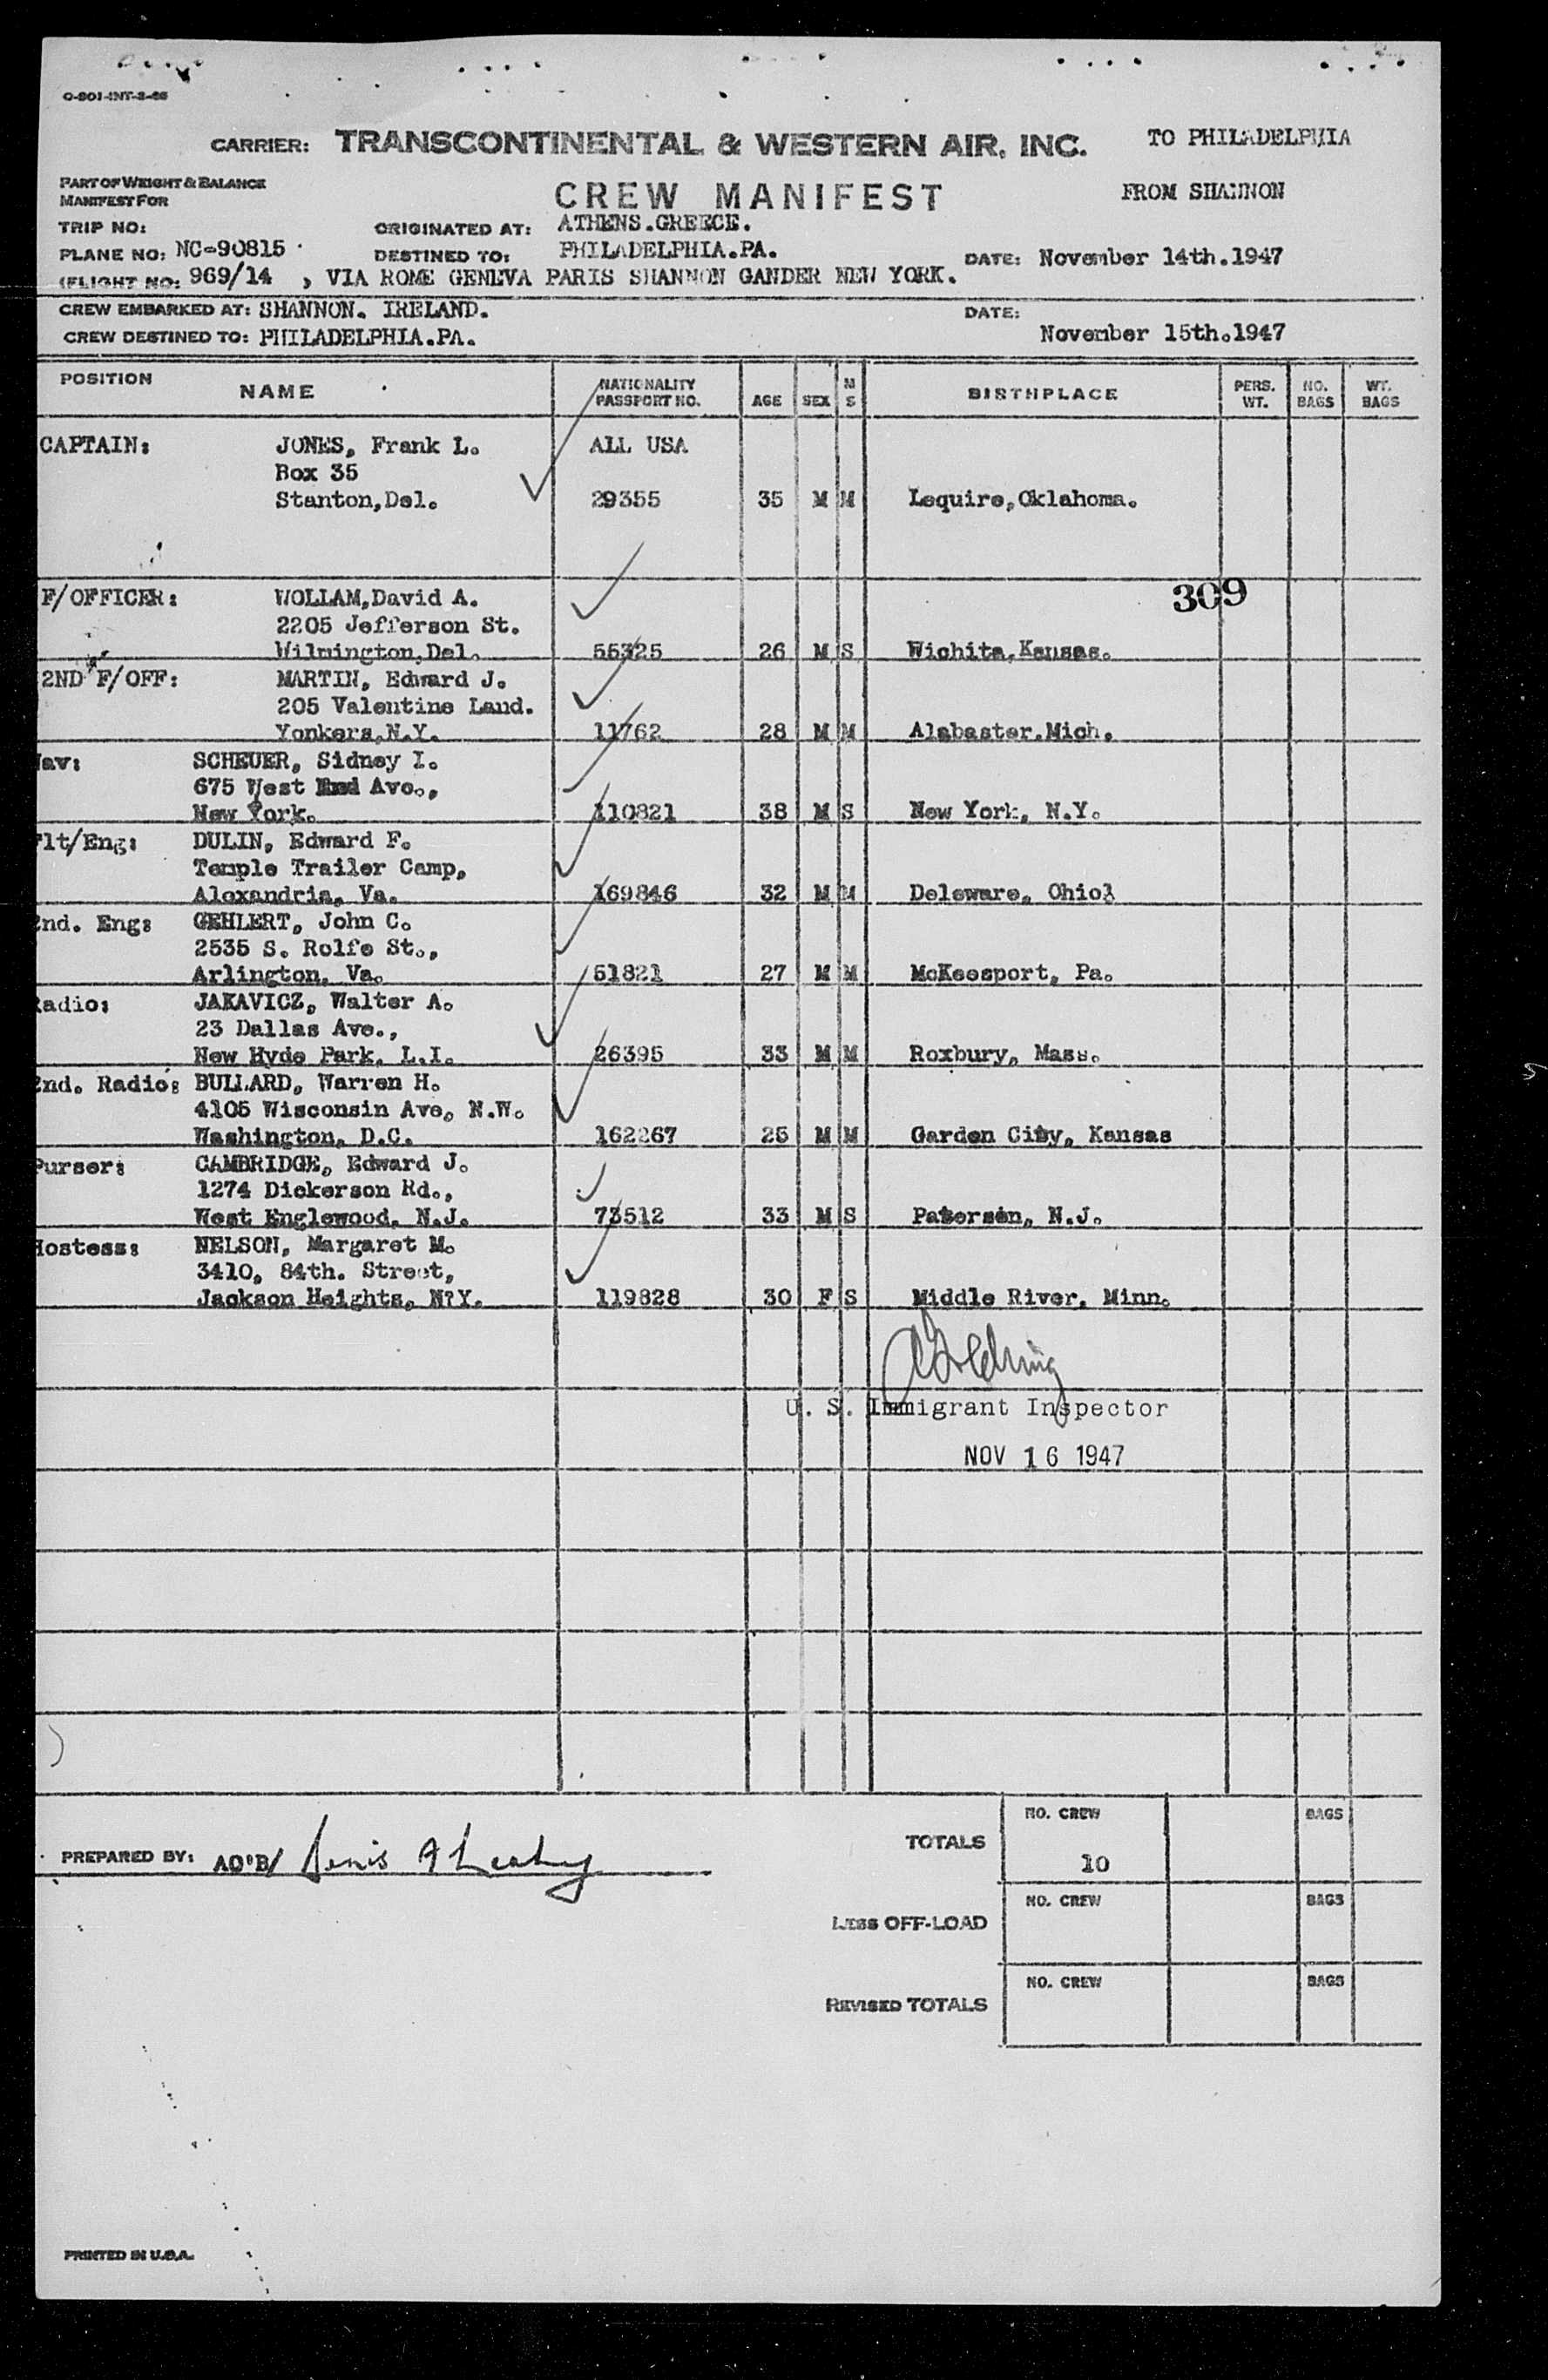 O-801-INT-3-46
CARRIER: TRANSCONTINENTAL & WESTERN AIR, INC. TO PHILADELPHIA
PART OF WEIGHT & BALANCE
MANIFEST FOR CREW MANIFEST FROM SHANNON
TRIP NO: ORIGINATED AT: ATHENS.GREECE.
PLANE NO: NC-90815 DESTINED TO: PHILADELPHIA.PA. DATE: November 14th.1947
(FLIGHT NO: 969/14 , VIA ROME GENEVA PARIS SHANNON GANDER NEW YORK.
CREW EMBARKED AT: SHANNON. IRELAND. DATE:
CREW DESTINED TO: PHILADELPHIA.PA. November 15th.1947
POSITION NAME NATIONALITY PASSPORT NO. AGE SEX M S BIRTHPLACE PERS. WT. NO. BAGS WT. BAGS
CAPTAIN: JONES, Frank L. ALL USA
Box 35
Stanton,Del. 29355 35 M M Lequire,Oklahoma.
309
F/OFFICER: WOLLAM,David A.
2205 Jefferson St.
Wilmington,Del. 55325 26 M S Wichita,Kansas.
2ND F/OFF: MARTIN, Edward J.
205 Valentine Land.
Yonkers,N.Y. 11762 28 M M Alabaster.Mich.
av: SCHEUER, Sidney I.
675 West End Ave.,
New York. 110821 38 M S New York, N.Y.
lt/Eng: DULIN, Edward F.
Temple Trailer Camp,
Alexandria, Va. 169846 32 M M Deleware, Ohio
2nd. Eng: GEHLERT, John C.
2535 S. Rolfe St.,
Arlington, Va. 51821 27 M M McKeesport, Pa.
adio: JAKAVICZ, Walter A.
23 Dallas Ave.,
New Hyde Park. L.I. 26395 33 M M Roxbury, Mass.
2nd. Radio: BULLARD, Warren H.
4105 Wisconsin Ave, N.W.
Washington, D.C. 162267 25 M M Garden City, Kansas
Purser: CAMBRIDGE, Edward J.
1274 Dickerson Rd.,
West Englewood, N.J. 73512 33 M S Paterson, N.J.
Hostess: NELSON, Margaret M.
3410, 84th. Street,
Jackson Heights, N?Y. 119828 30 F S Middle River, Minn.
U. S. Immigrant Inspector
NOV 16 1947
TOTALS NO. CREW 10 BAGS
PREPARED BY: AO'B/ Denis A Leahy
LESS OFF-LOAD NO. CREW BAGS
REVISED TOTALS NO. CREW BAGS
PRINTED IN U.S.A.